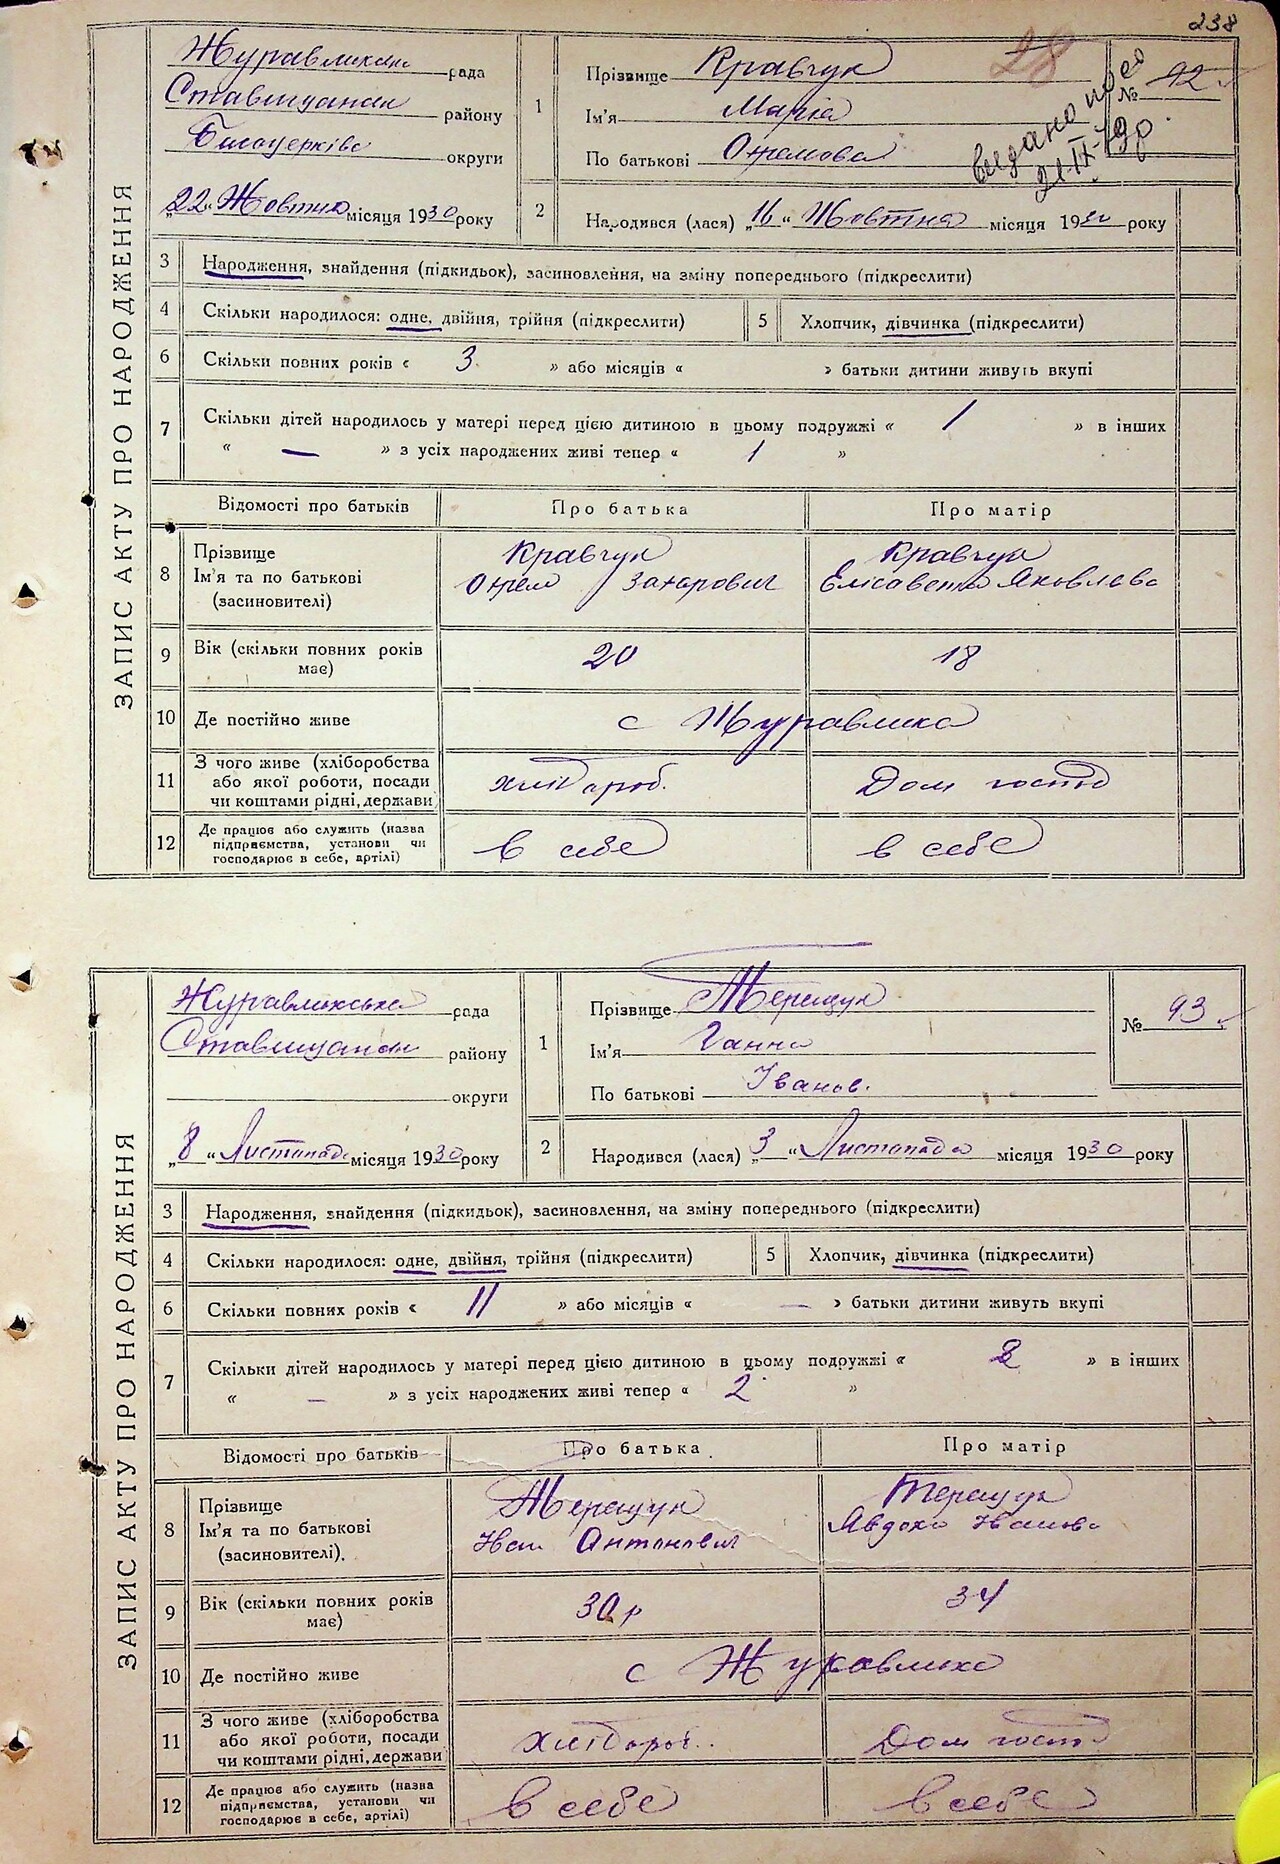 238
28
ЗАПИС АКТУ ПРО НАРОДЖЕННЯ
рада
району
округи
„22“ Жовтня місяця 1930 року
1
Прізвище Кравчук
Ім'я Марія
По батькові
№ 92
видано
2
Народився (лася) „16“ Жовтня місяця 1930 року
3 Народження, знайдення (підкидьок), засиновлення, на зміну попереднього (підкреслити)
4 Скільки народилося: одне, двійня, трійня (підкреслити) 5 Хлопчик, дівчинка (підкреслити)
6 Скільки повних років « 3 » або місяців « » батьки дитини живуть вкупі
7 Скільки дітей народилось у матері перед цією дитиною в цьому подружжі « 1 » в інших
« — » з усіх народжених живі тепер « 1 »
Відомості про батьків Про батька Про матір
8 Прізвище Кравчук Кравчук
Ім'я та по батькові Захарович Єлисавета Яковлева
(засиновителі)
9 Вік (скільки повних років 20 18
має)
10 Де постійно живе с Журавлиха
11 З чого живе (хліборобства
або якої роботи, посади хлібороб. Дом госпо
чи коштами рідні, держави
12 Де працює або служить (назва
підприємства, установи чи в себе в себе
господарює в себе, артілі)
ЗАПИС АКТУ ПРО НАРОДЖЕННЯ
Журавлихська рада
району
округи
„8“ Листопада місяця 1930 року
1
Прізвище Терещук
Ім'я Ганна
По батькові Іванов.
№ 93
2
Народився (лася) „3“ Листопада місяця 1930 року
3 Народження, знайдення (підкидьок), засиновлення, на зміну попереднього (підкреслити)
4 Скільки народилося: одне, двійня, трійня (підкреслити) 5 Хлопчик, дівчинка (підкреслити)
6 Скільки повних років « 11 » або місяців « — » батьки дитини живуть вкупі
7 Скільки дітей народилось у матері перед цією дитиною в цьому подружжі « 2 » в інших
« — » з усіх народжених живі тепер « 2 »
Відомості про батьків Про батька Про матір
8 Прізвище Терещук Терещук
Ім'я та по батькові Іван Антонович Явдоха Іванова
(засиновителі).
9 Вік (скільки повних років 30 р 34
має)
10 Де постійно живе с Журавлиха
11 З чого живе (хліборобства
або якої роботи, посади хлібороб. Дом госпо
чи коштами рідні, держави
12 Де працює або служить (назва
підприємства, установи чи в себе в себе
господарює в себе, артілі)